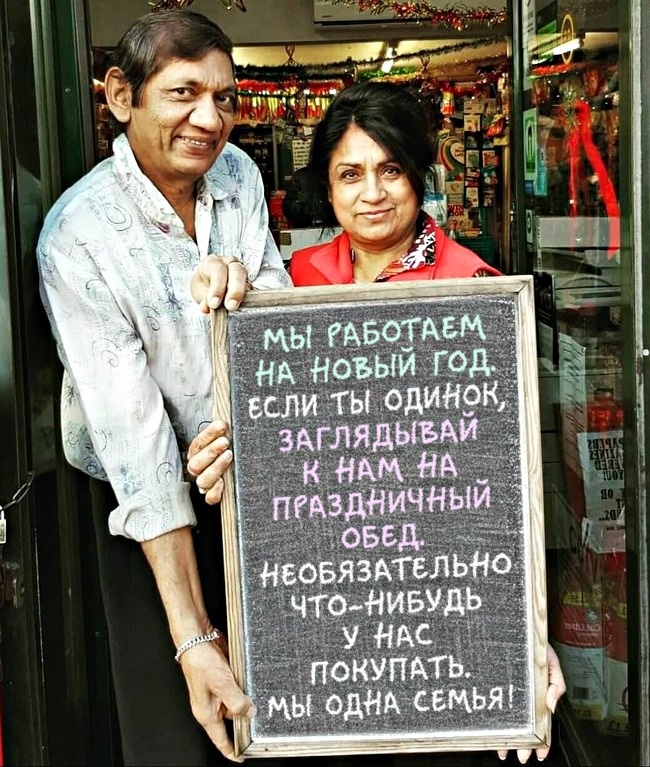 МЫ РАБОТАЕМ
НА НОВЫЙ ГОД.
ЕСЛИ ТЫ ОДИНОК,
ЗАГЛЯДЫВАЙ
К НАМ НА
ПРАЗДНИЧНЫЙ
ОБЕД.
НЕОБЯЗАТЕЛЬНО
ЧТО-НИБУДЬ
У НАС
ПОКУПАТЬ.
МЫ ОДНА СЕМЬЯ!